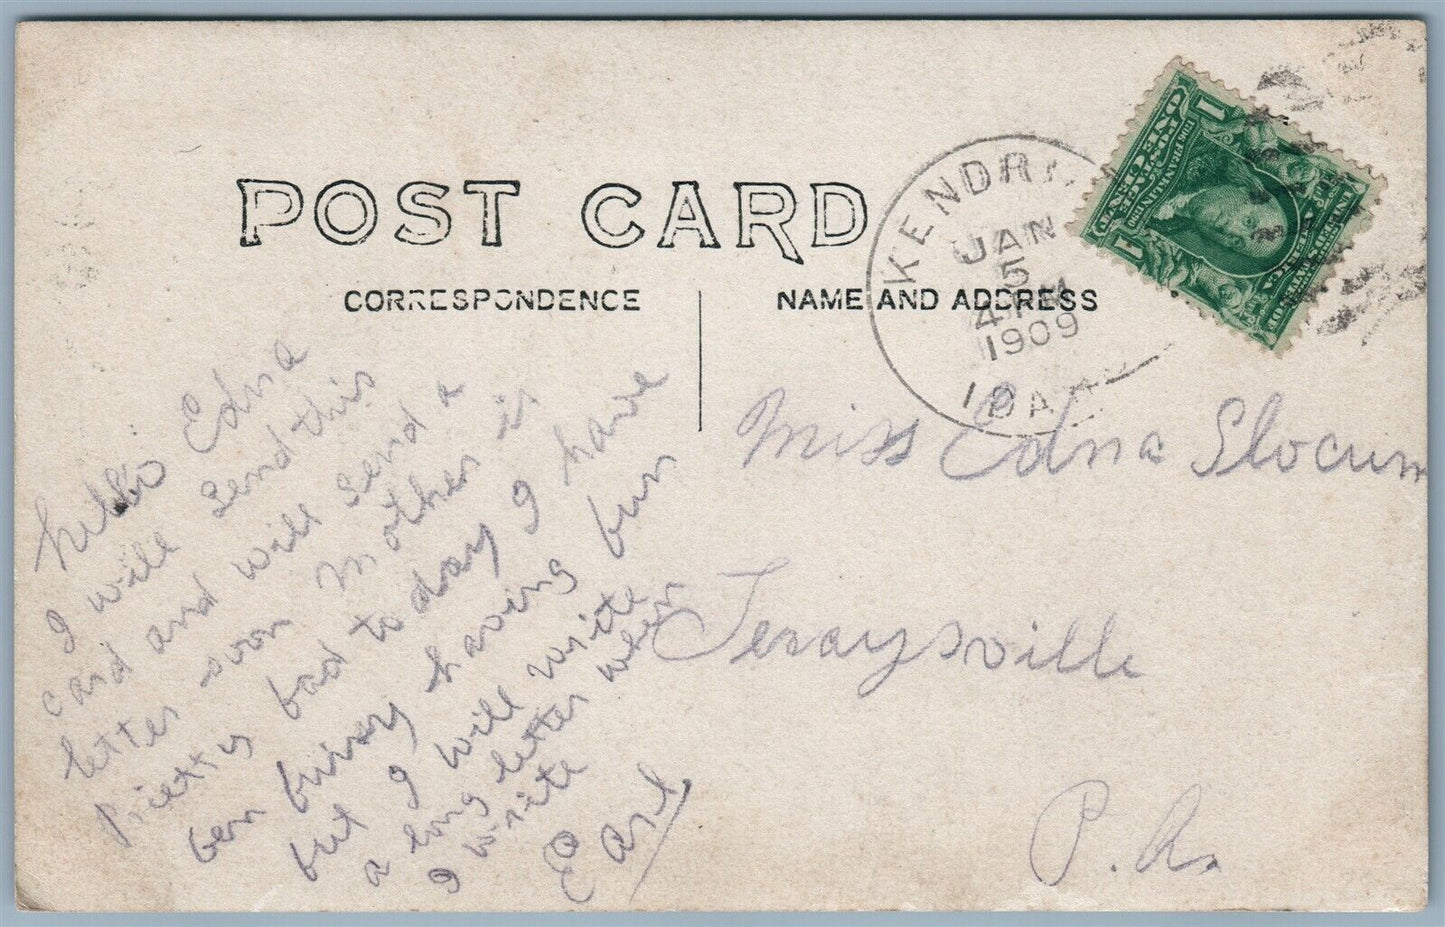 POST CARD
CORRESPONDENCE
NAME AND ADDRESS
KENDRI
JAN
5
4 PM
1909
IDA
1
1
hello Edna
I will send this
card and will send a
letter soon Mother is
Pretty bad to day I have
ben bussy having fun
but I will write
a long letter when
I write
Earl
Miss Edna Slocum
Terraysville
P.A.